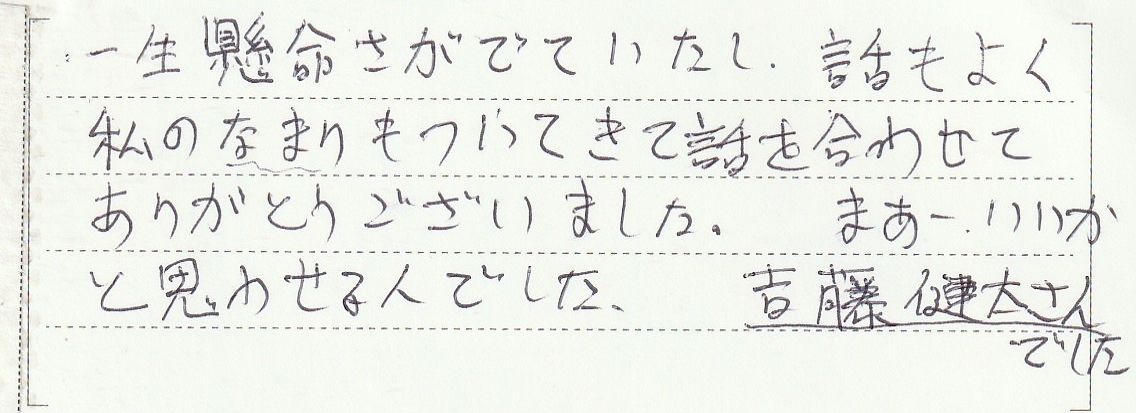 一生懸命さがでていたし、話もよく
私のなまりもついてきて話を合わせて
ありがとうございました。 まあー、いいか
と思わせる人でした、 吉藤健太さん
でした